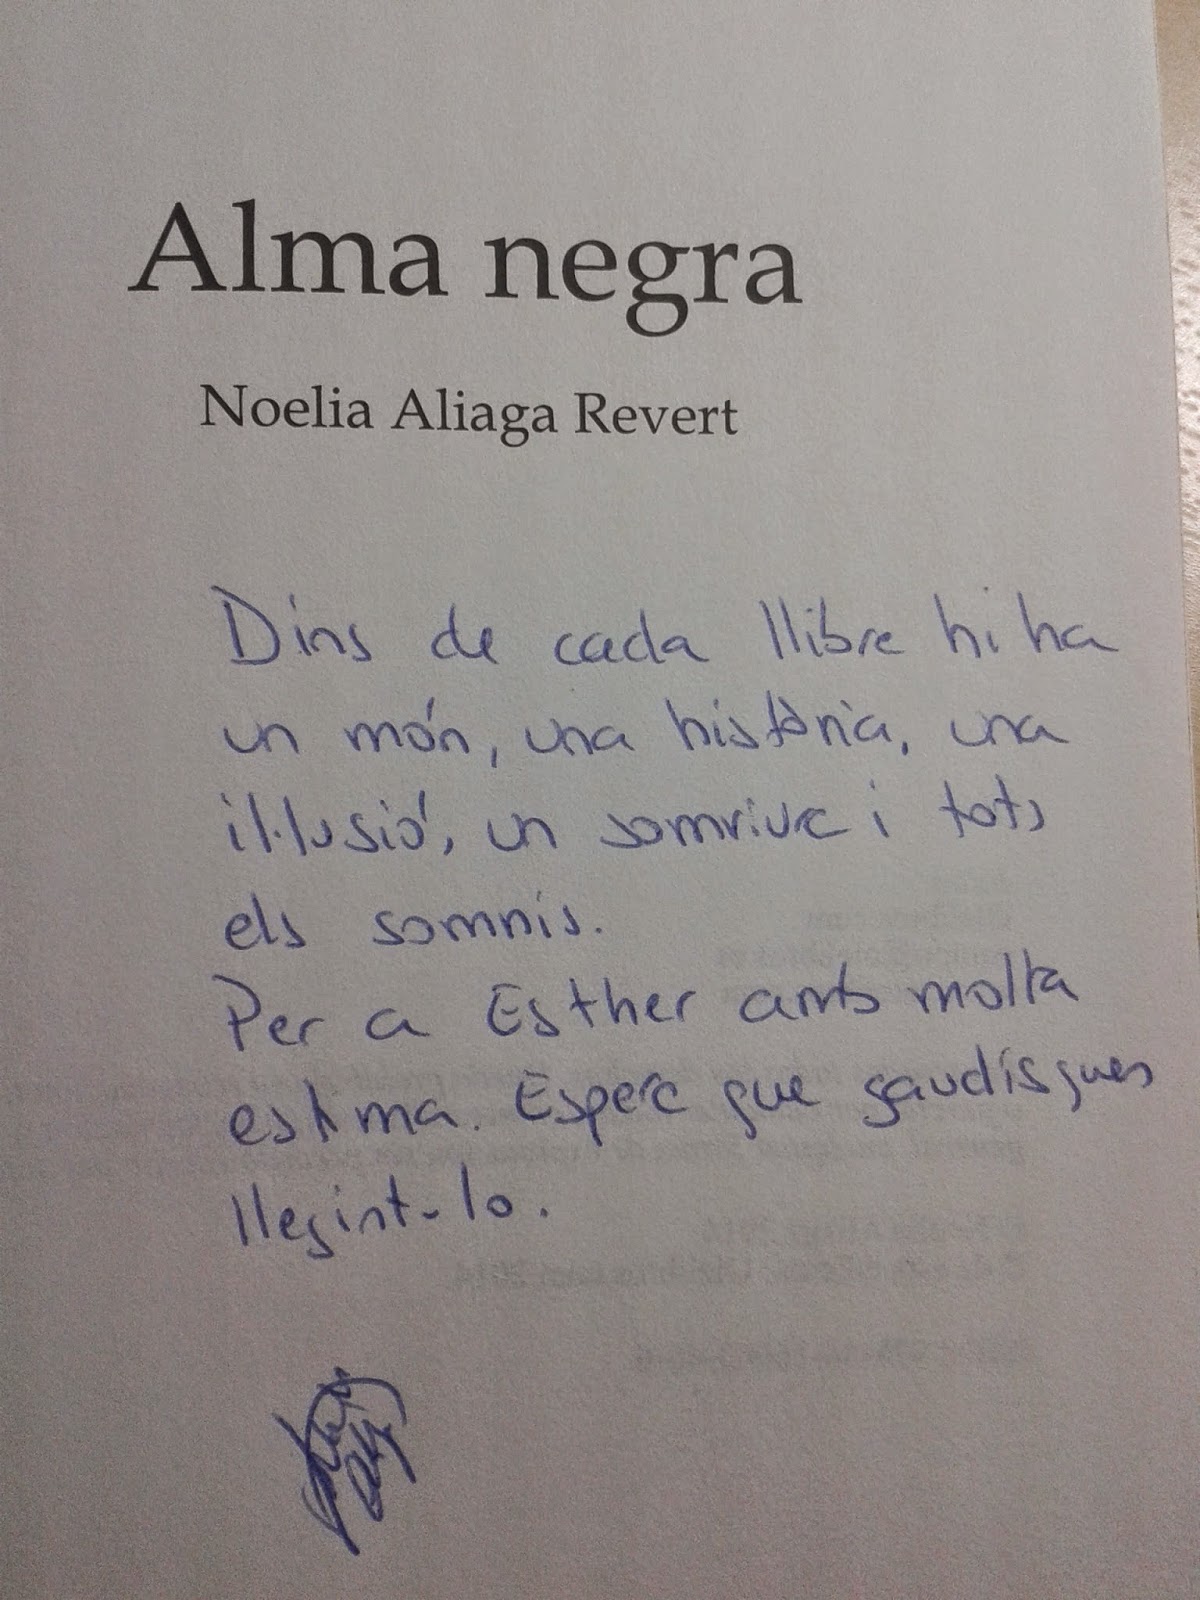 Alma negra
Noelia Aliaga Revert
Dins de cada llibre hi ha
un món, una història, una
il·lusió, un somriure i tots
els somnis.
Per a Esther amb molta
estima. Espere que gaudisques
llegint-lo.